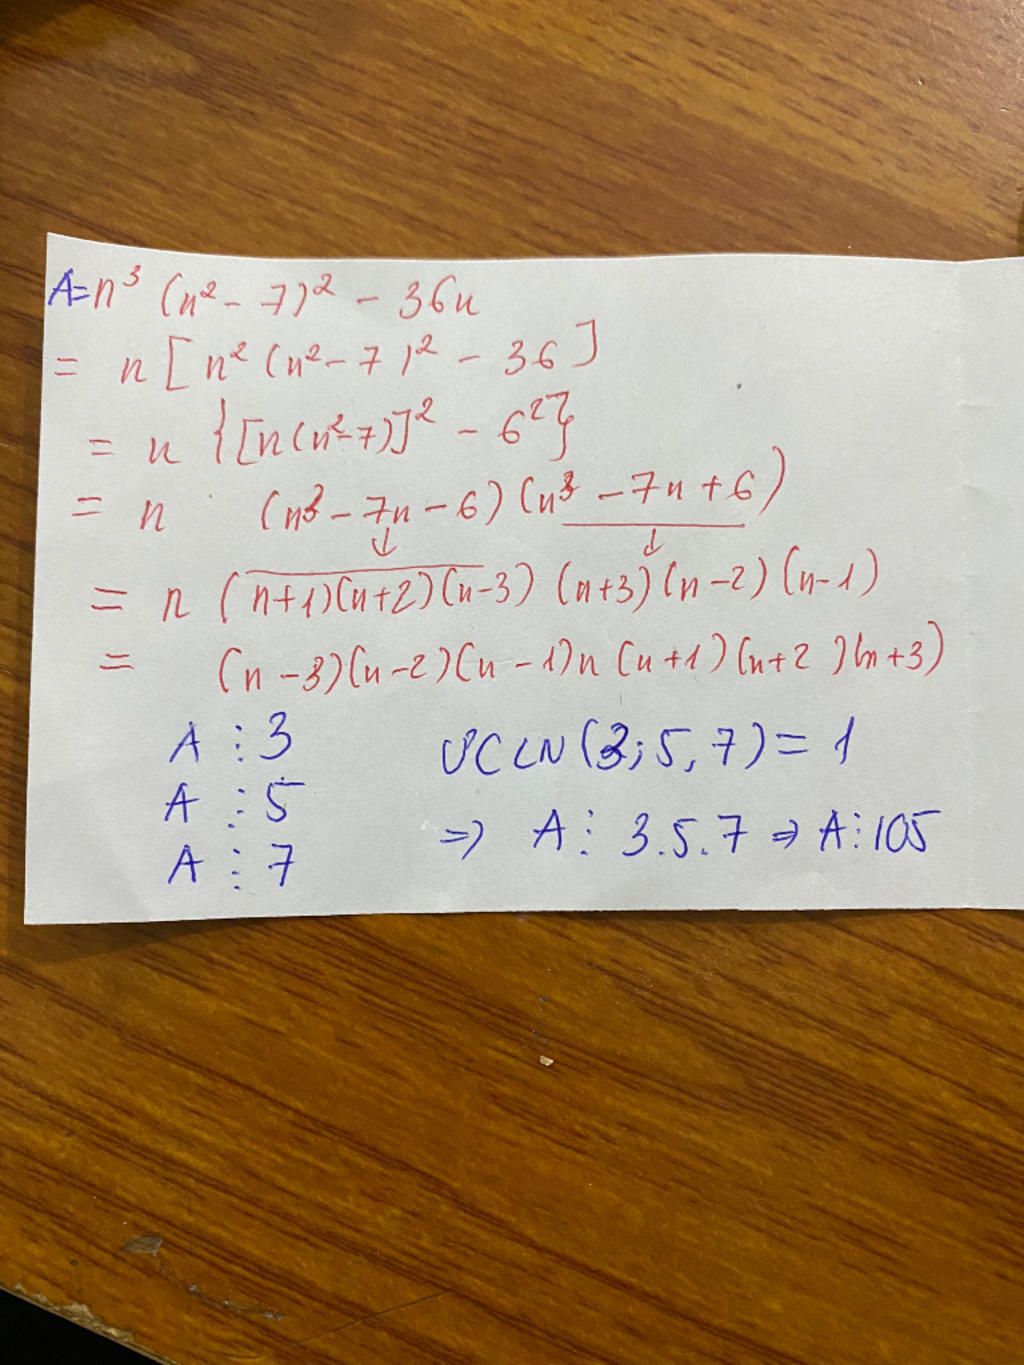 A=n³ (n² - 7)² - 36n
= n [n² (n² - 7)² - 36]
= n {[n(n²-7)]² - 6²}
= n (n³ - 7n - 6) (n³ - 7n + 6)
↓ ↓
= n (n+1)(n+2)(n-3) (n+3)(n-2)(n-1)
= (n-3)(n-2)(n-1)n(n+1)(n+2)(n+3)
A ⋮ 3 ƯCLN(3;5,7) = 1
A ⋮ 5
⇒ A ⋮ 3.5.7 ⇒ A ⋮ 105
A ⋮ 7